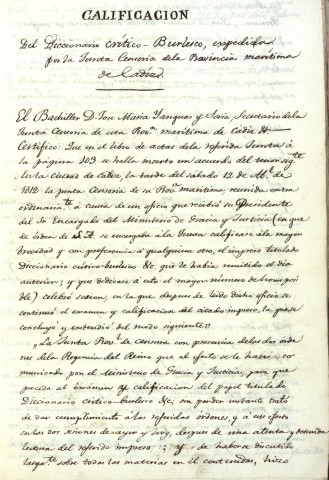 CALIFICACION
Del Diccionario crítico-Burlesco, expedida
por la Junta Censoria de la Provincia maritima
de Cádiz.
El Bachiller D. Jose Maria Yanguas y Soria, Secretario de la
Junta Censoria de esta Provª maritima de Cadiz &ª
Certifico: Que en el libro de actas de la referida Junta á
la página 103 se halla inserto un acuerdo del tenor sigte
En la Ciudad de Cádiz, la tarde del sábado 12 de Mº de
1812 la junta censoria de su Provª maritima, reunida extra
ordinariate á causa de un oficio que recibió su Presidente
del Sr Encargado del Ministerio de Gracia y Justicia (en que
de orden de S.A. se encargaba á la Junta calificase á la mayor
brevedad y con preferencia á qualquiera otro, el impreso titulado
Diccionario critico-burlesco &c. que se habia remitido el dia
anterior; y que dedicase á esto el mayor número de horas posi
ble) celebró sesion, en la que despues de leido dicho oficio se
continuó el examen y calificacion del citado impreso, la que se
concluyó y extendió del modo siguiente:
"La Junta Provl de Censura con presencia de las dos orde
nes de la Regencia del Reino que al efecto se le han co
municado por el Ministerio de Gracia y Justicia, para que
proceda al exámen y calificacion del papel titulado
Diccionario critico-burlesco &c; sin perder instante trató
de dar cumplimiento á las referidas órdenes, y á ese efecto
en las dos sesiones de ayer y hoy, despues de una atenta y detenida
lectura del referido impreso; y de haberse discutido
largate sobre todas las materias en él contenidas, hizo